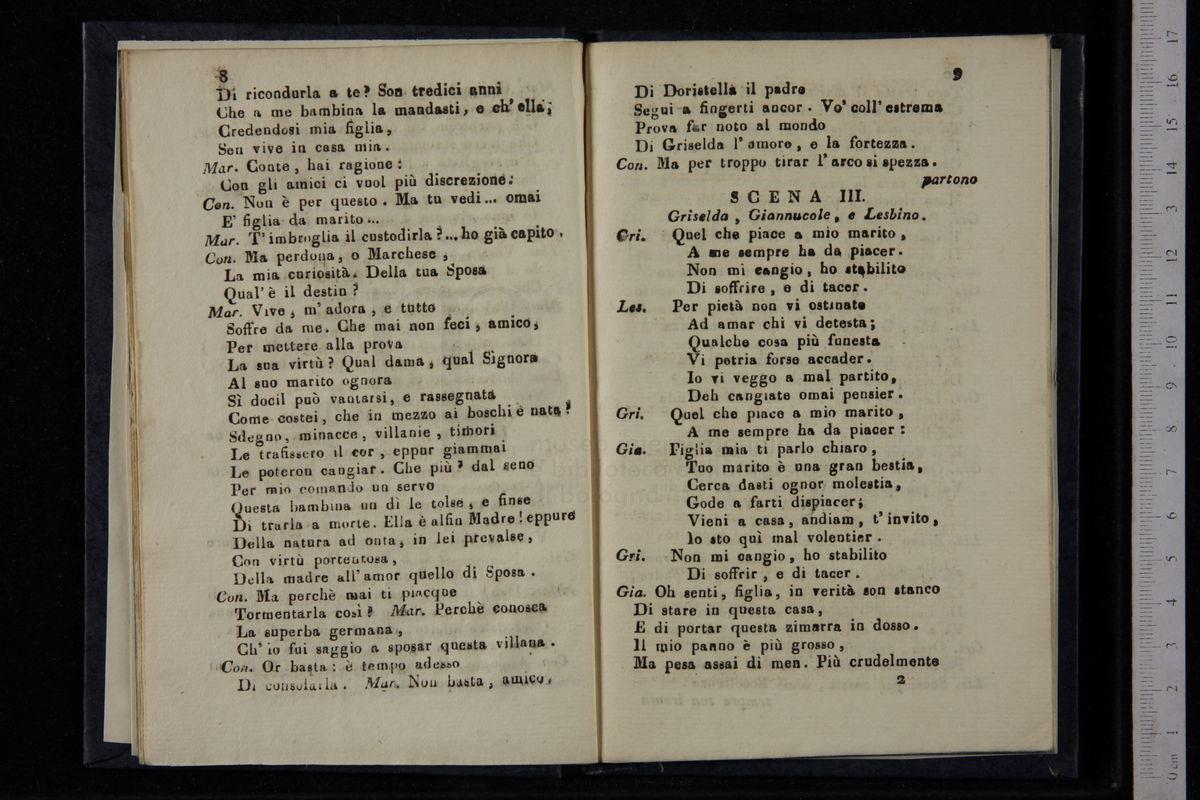 8
Di ricondurla a te? Son tredici anni
Che a me bambina la mandasti, e ch' ella;
Credendosi mia figlia,
Sen vive in casa mia.
Mar. Conte, hai ragione:
Con gli amici ci vuol più discrezione:
Con. Non è per questo. Ma tu vedi... omai
E' figlia da marito...
Mar. T' imbroglia il custodirla?... ho già capito.
Con. Ma perdona, o Marchese,
La mia curiosità. Della tua Sposa
Qual' è il destin?
Mar. Vive, m' adora, e tutto
Soffre da me. Che mai non feci, amico,
Per mettere alla prova
La sua virtù? Qual dama, qual Signora
Al suo marito ognora
Sì docil può vantarsi, e rassegnata
Come costei, che in mezzo ai boschi è nata?
Sdegno, minacce, villanie, timori
Le trafissero il cor, eppur giammai
Le poteron cangiar. Che più? dal seno
Per mio comando un servo
Questa bambina un dì le tolse, e finse
Di trarla a morte. Ella è alfin Madre! eppure
Della natura ad onta, in lei prevalse,
Con virtù portentosa,
Della madre all' amor quello di Sposa.
Con. Ma perchè mai ti piacque
Tormentarla così? Mar. Perchè conosca
La superba germana,
Ch' io fui saggio a sposar questa villana.
Con. Or basta: è tempo adesso
Di consolarla. Mar. Non basta, amico,
9
Di Doristella il padre
Segui a fingerti ancor. Vo' coll' estrema
Prova far noto al mondo
Di Griselda l' amore, e la fortezza.
Con. Ma per troppo tirar l' arco si spezza.
partono
SCENA III.
Griselda, Giannucole, e Lesbino.
Gri. Quel che piace a mio marito,
A me sempre ha da piacer.
Non mi cangio, ho stabilito
Di soffrire, e di tacer.
Les. Per pietà non vi ostinate
Ad amar chi vi detesta;
Qualche cosa più funesta
Vi potria forse accader.
Io vi veggo a mal partito,
Deh cangiate omai pensier.
Gri. Quel che piace a mio marito,
A me sempre ha da piacer:
Gia. Figlia mia ti parlo chiaro,
Tuo marito è una gran bestia,
Cerca dasti ognor molestia,
Gode a farti dispiacer;
Vieni a casa, andiam, t' invito,
Io sto quì mal volentier.
Gri. Non mi cangio, ho stabilito
Di soffrir, e di tacer.
Gia. Oh senti, figlia, in verità son stanco
Di stare in questa casa,
E di portar questa zimarra in dosso.
Il mio panno è più grosso,
Ma pesa assai di men. Più crudelmente
2